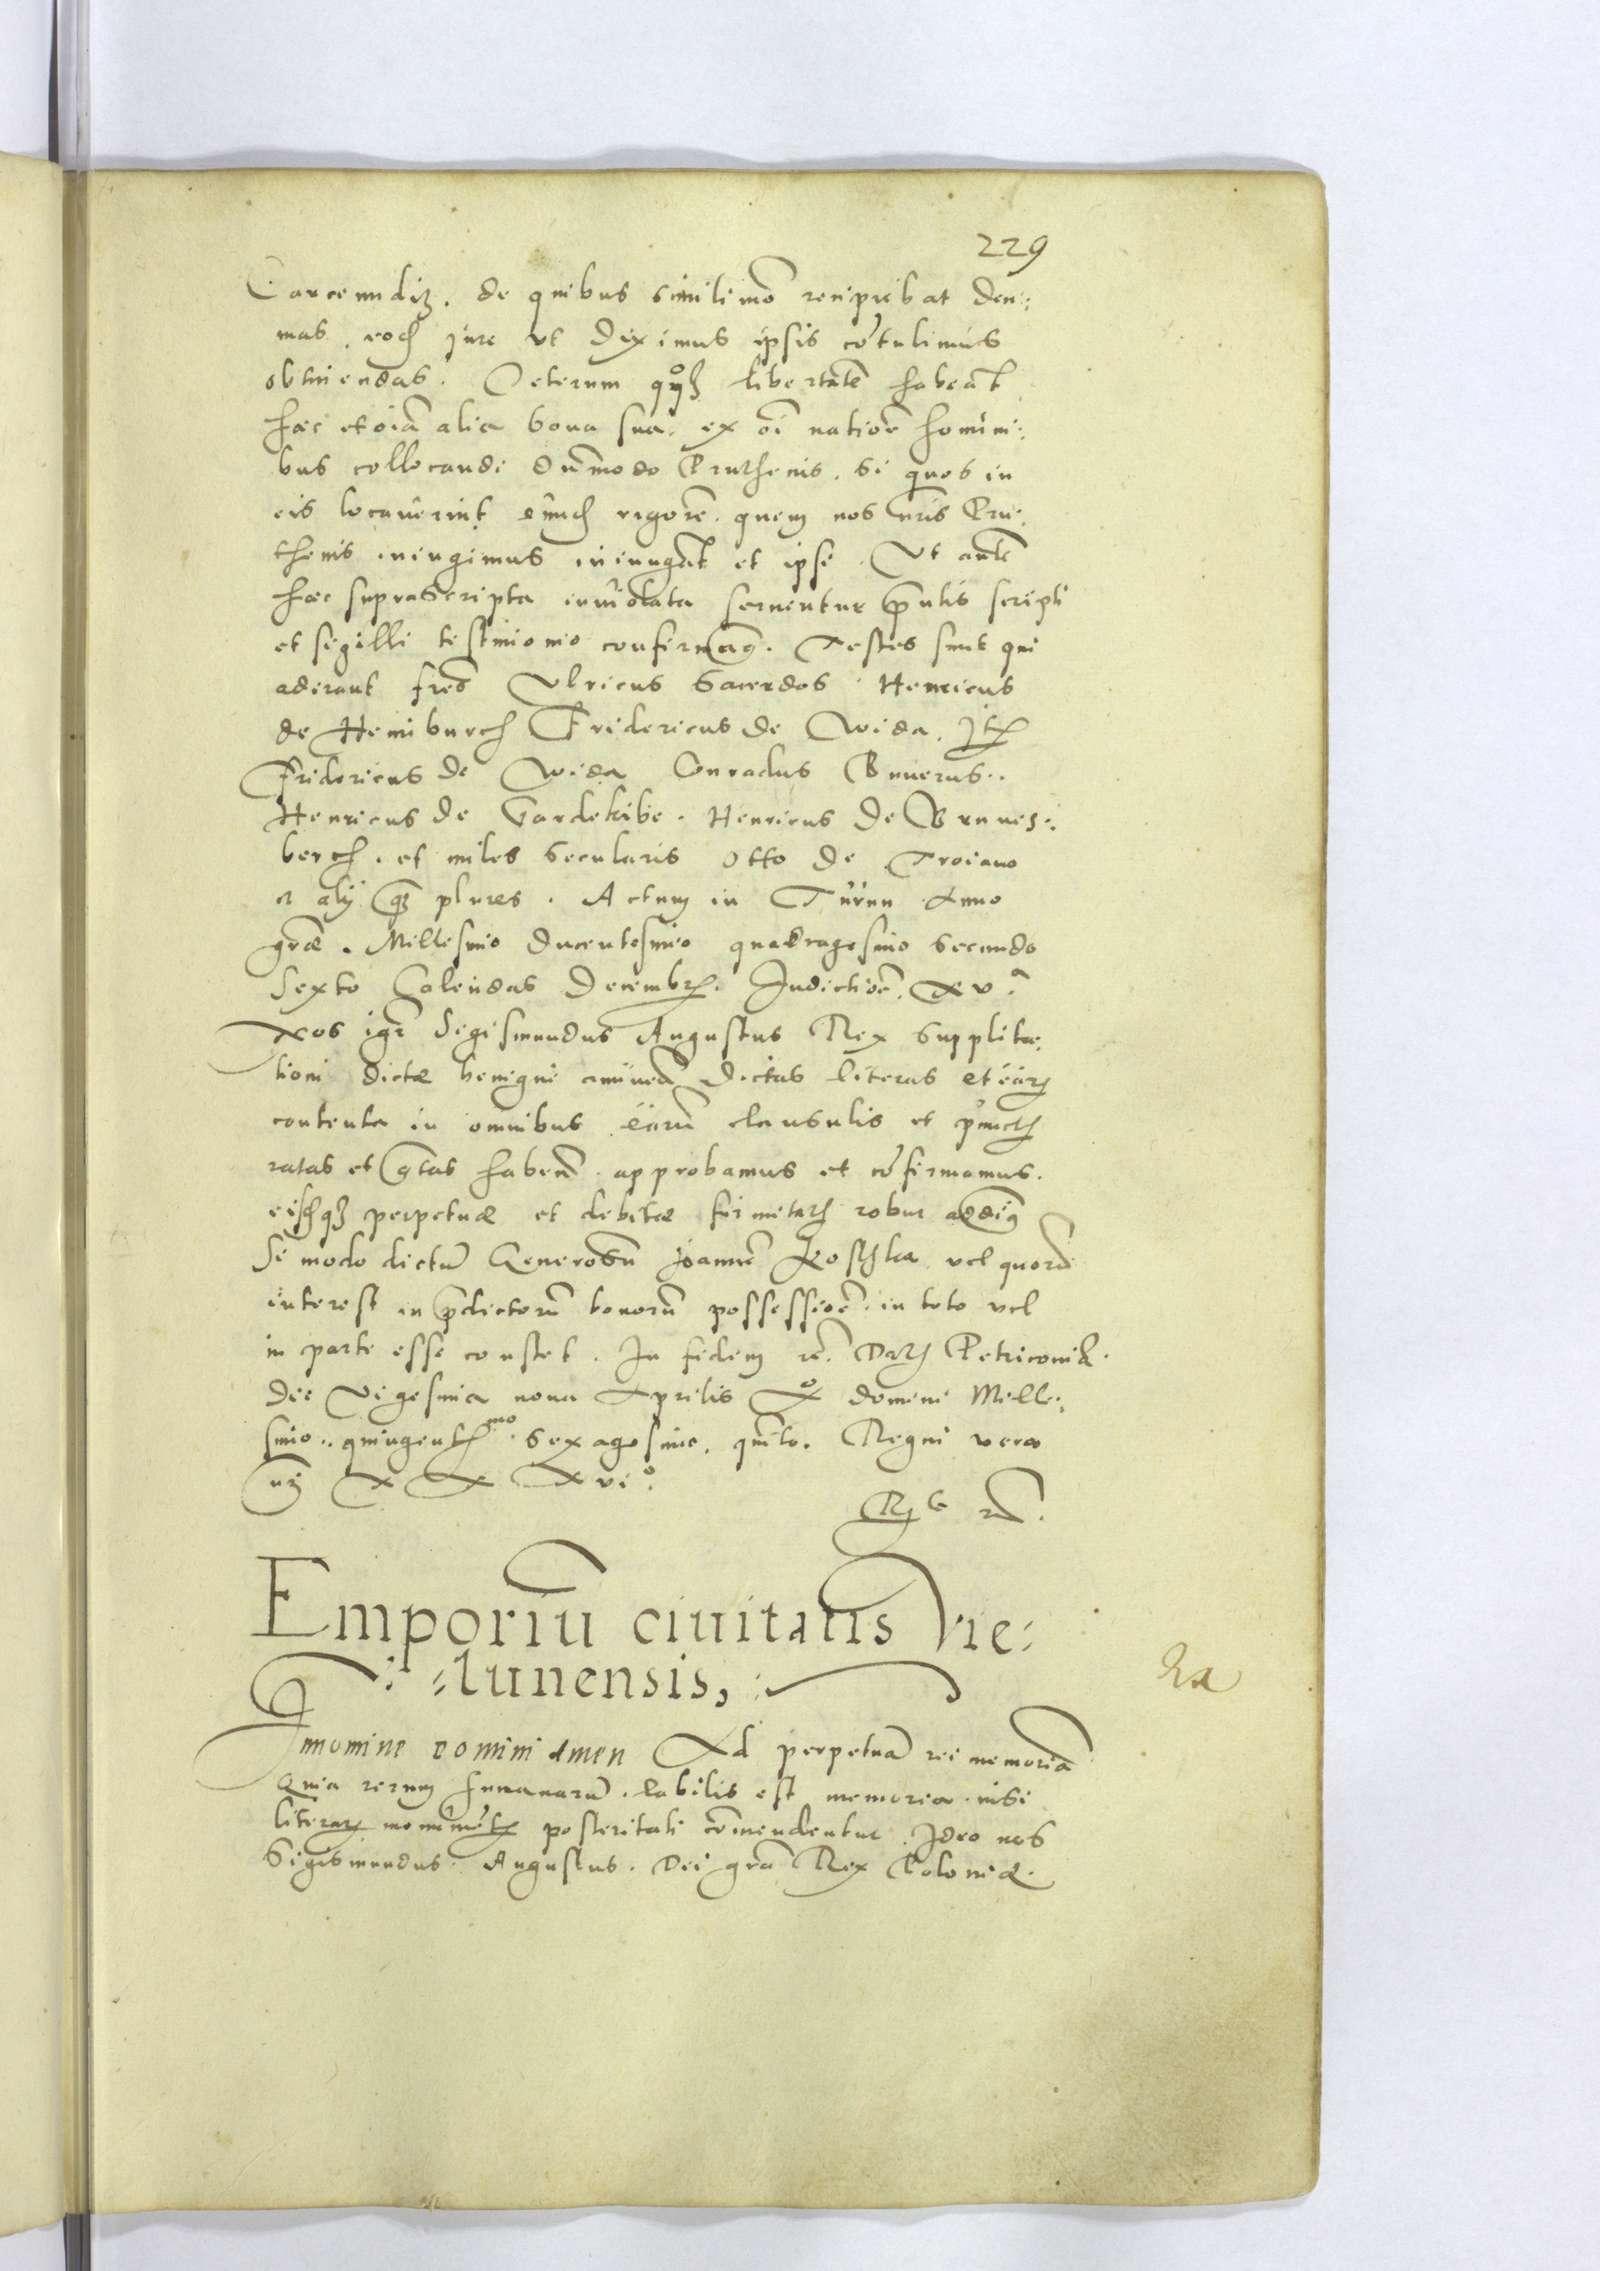 229
Carcenndiz. de quibus similimo recipiebat den:
mas. eodem jure ut diximus ipsis cōtulimus
obtinendas. Ceterum quoque libertatē habeāt
hæc et oīa alia bona sua. ex oī natiōe homini:
bus collocandi dūmodo Pruthenis. Si quos in
eis locauerint eundem rigorē quem nos nr̄is Pru:
thenis iniugimus iniungāt et ipsi. Ut autē
hæc suprascripta inuiolata seruentur pn̄tis scripti
et sigilli testimonio confirmamus. Testes sunt qui
aderant fr̄es Ulricus Sacerdos. Henricus
de Hemiburch Fridericus de Wida. Itē
Fridericus de Wida Conradus Bnuerus..
Henricus de Gardekibe. Henricus de Brunes:
berch. et miles secularis Otto de Troiano
et alij quam plures. Actum in Turun Anno
gr̄æ. Millesimo ducentesimo quadragesimo secundo
Sexto Calendas Decembris. Indictiōe. xv.ª
Nos igr̄ Sigismundus Augustus Rex supplica:
tioni dictæ benigne annuen̄ dictas literas et earum
contenta in omnibus earū clausulis et punctis
ratas et gratas haben̄. approbamus et cōfirmamus.
eisdemque perpetuæ et debitæ firmitatis robur addimus
Si modo dictū Generosū Joannē Koschka vel quorū
interest in prædictorū bonorū possessiōē. in toto vel
in parte esse constet. In fidem rē. Datum Petricouiæ.
die Vigesima nona Aprilis Aº domini Mille:
simo.. quingentesimo. Sexagesimo. quinto. Regni vero
nr̄i XXXviº.
Emporiū ciuitatis Vie:
:lunensis,
In nomine domini amen Ad perpetuā rei memoriā
Quia rerum humanarū. labilis est memoria. nisi
literarum monimētis posteritati cōmendentur. Ideo nos
Sigismundus. Augustus. Dei gr̄a Rex Poloniæ.